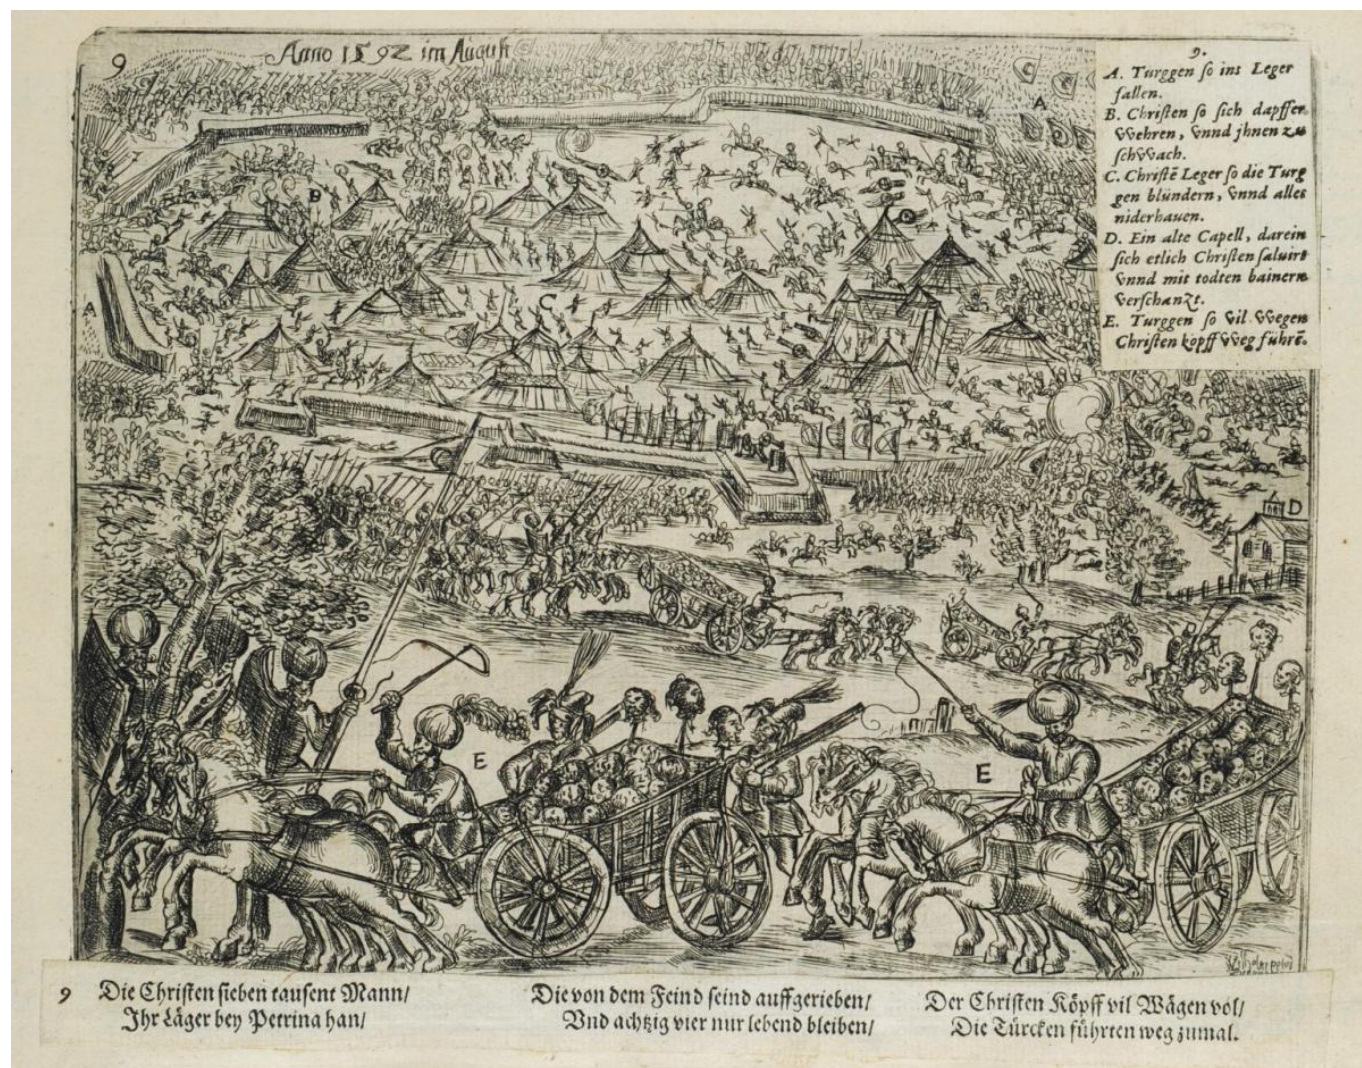 9
Anno 1592 im August
9.
A. Turggen so ins Leger
fallen.
B. Christen so sich dapffer
VVehren, vnnd jhnen zu
schVVach.
C. Christẽ Leger so die Turg
gen blündern, vnnd alles
niderhauen.
D. Ein alte Capell, darein
sich etlich Christen saluirt
vnnd mit todten bainern
verschanzt.
E. Turggen so vil VVegen
Christen kopff VVeg führẽ.
A
B
A
C
D
E
E
9 Die Christen sieben tausent Mann/
Ihr Läger bey Petrina han/
Die von dem Feind seind auffgerieben/
Vnd achtzig vier nur lebend bleiben/
Der Christen Köpff vil Wägen vol/
Die Türcken führten weg zumal.